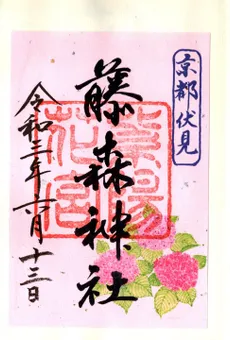 京都伏見
藤森神社
紫陽花宮
令和三年六月十三日